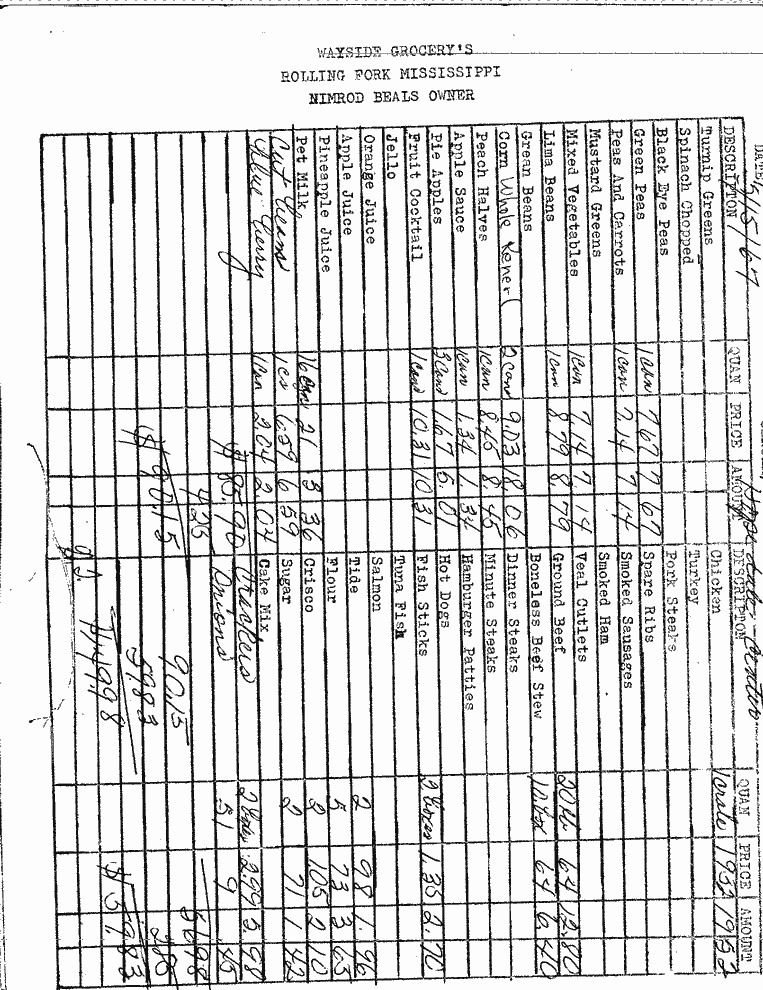 WAYSIDE GROCERY'S
ROLLING FORK MISSISSIPPI
NIMROD BEALS OWNER
DATE
DESCRIPTON QUAN PRICE AMOUNT
Turnip Greens
Spinach Chopped
Black Eye Peas
Green Peas 1 can 7.67 7 67
Peas And Carrots 1 can 7.14 7 14
Mustard Greens
Mixed Vegetables 1 can 7.14 7. 14
Lima Beans 1 can 8.79 8. 79
Grean Beans
Corn Whole Kenerl 2 can 9.03 18. 06
Peach Halves 1 can 8.45 8. 45
Apple Sauce 1 can 1.34 1. 34
Pie Apples 3 can 1.67 5. 01
Fruit Cocktail 1 can 10.31 10 31
Jello
Orange Juice
Apple Juice
Pineapple Juice
Pet Milk, 16 can 21 3 36
Cut Yeams 1 cs 6.59 6 59
1 can 2.04 2. 04
$ 85.90
4 25
$ 90.15
DESCRIPTON QUAN PRICE AMOUNT
Chicken 1 crate 19 52 19 52
Turkey
Pork Steaks
Spare Ribs
Smoked Sausages
Smoked Ham
Veal Cutlets
Ground Beef 20 lb 64 12.80
Boneless Beef Stew 10 box 64 6.40
Dinner Steaks
Minute Steaks
Hamburger Patties
Hot Dogs
Fish Sticks 2 boxes 1.35 2.70
Tuna Fish
Salmon
Tide 2 98 1. 96
Flour 5 73 3 65
Crisco 2 105 2 10
Sugar 2 71 1 42
Cake Mix
Crackers 2 boxes 2.99 5 98
Onions 5 9 .45
$ 56.98
2.85
$ 59.83
90 15
59 83
$ 149.98